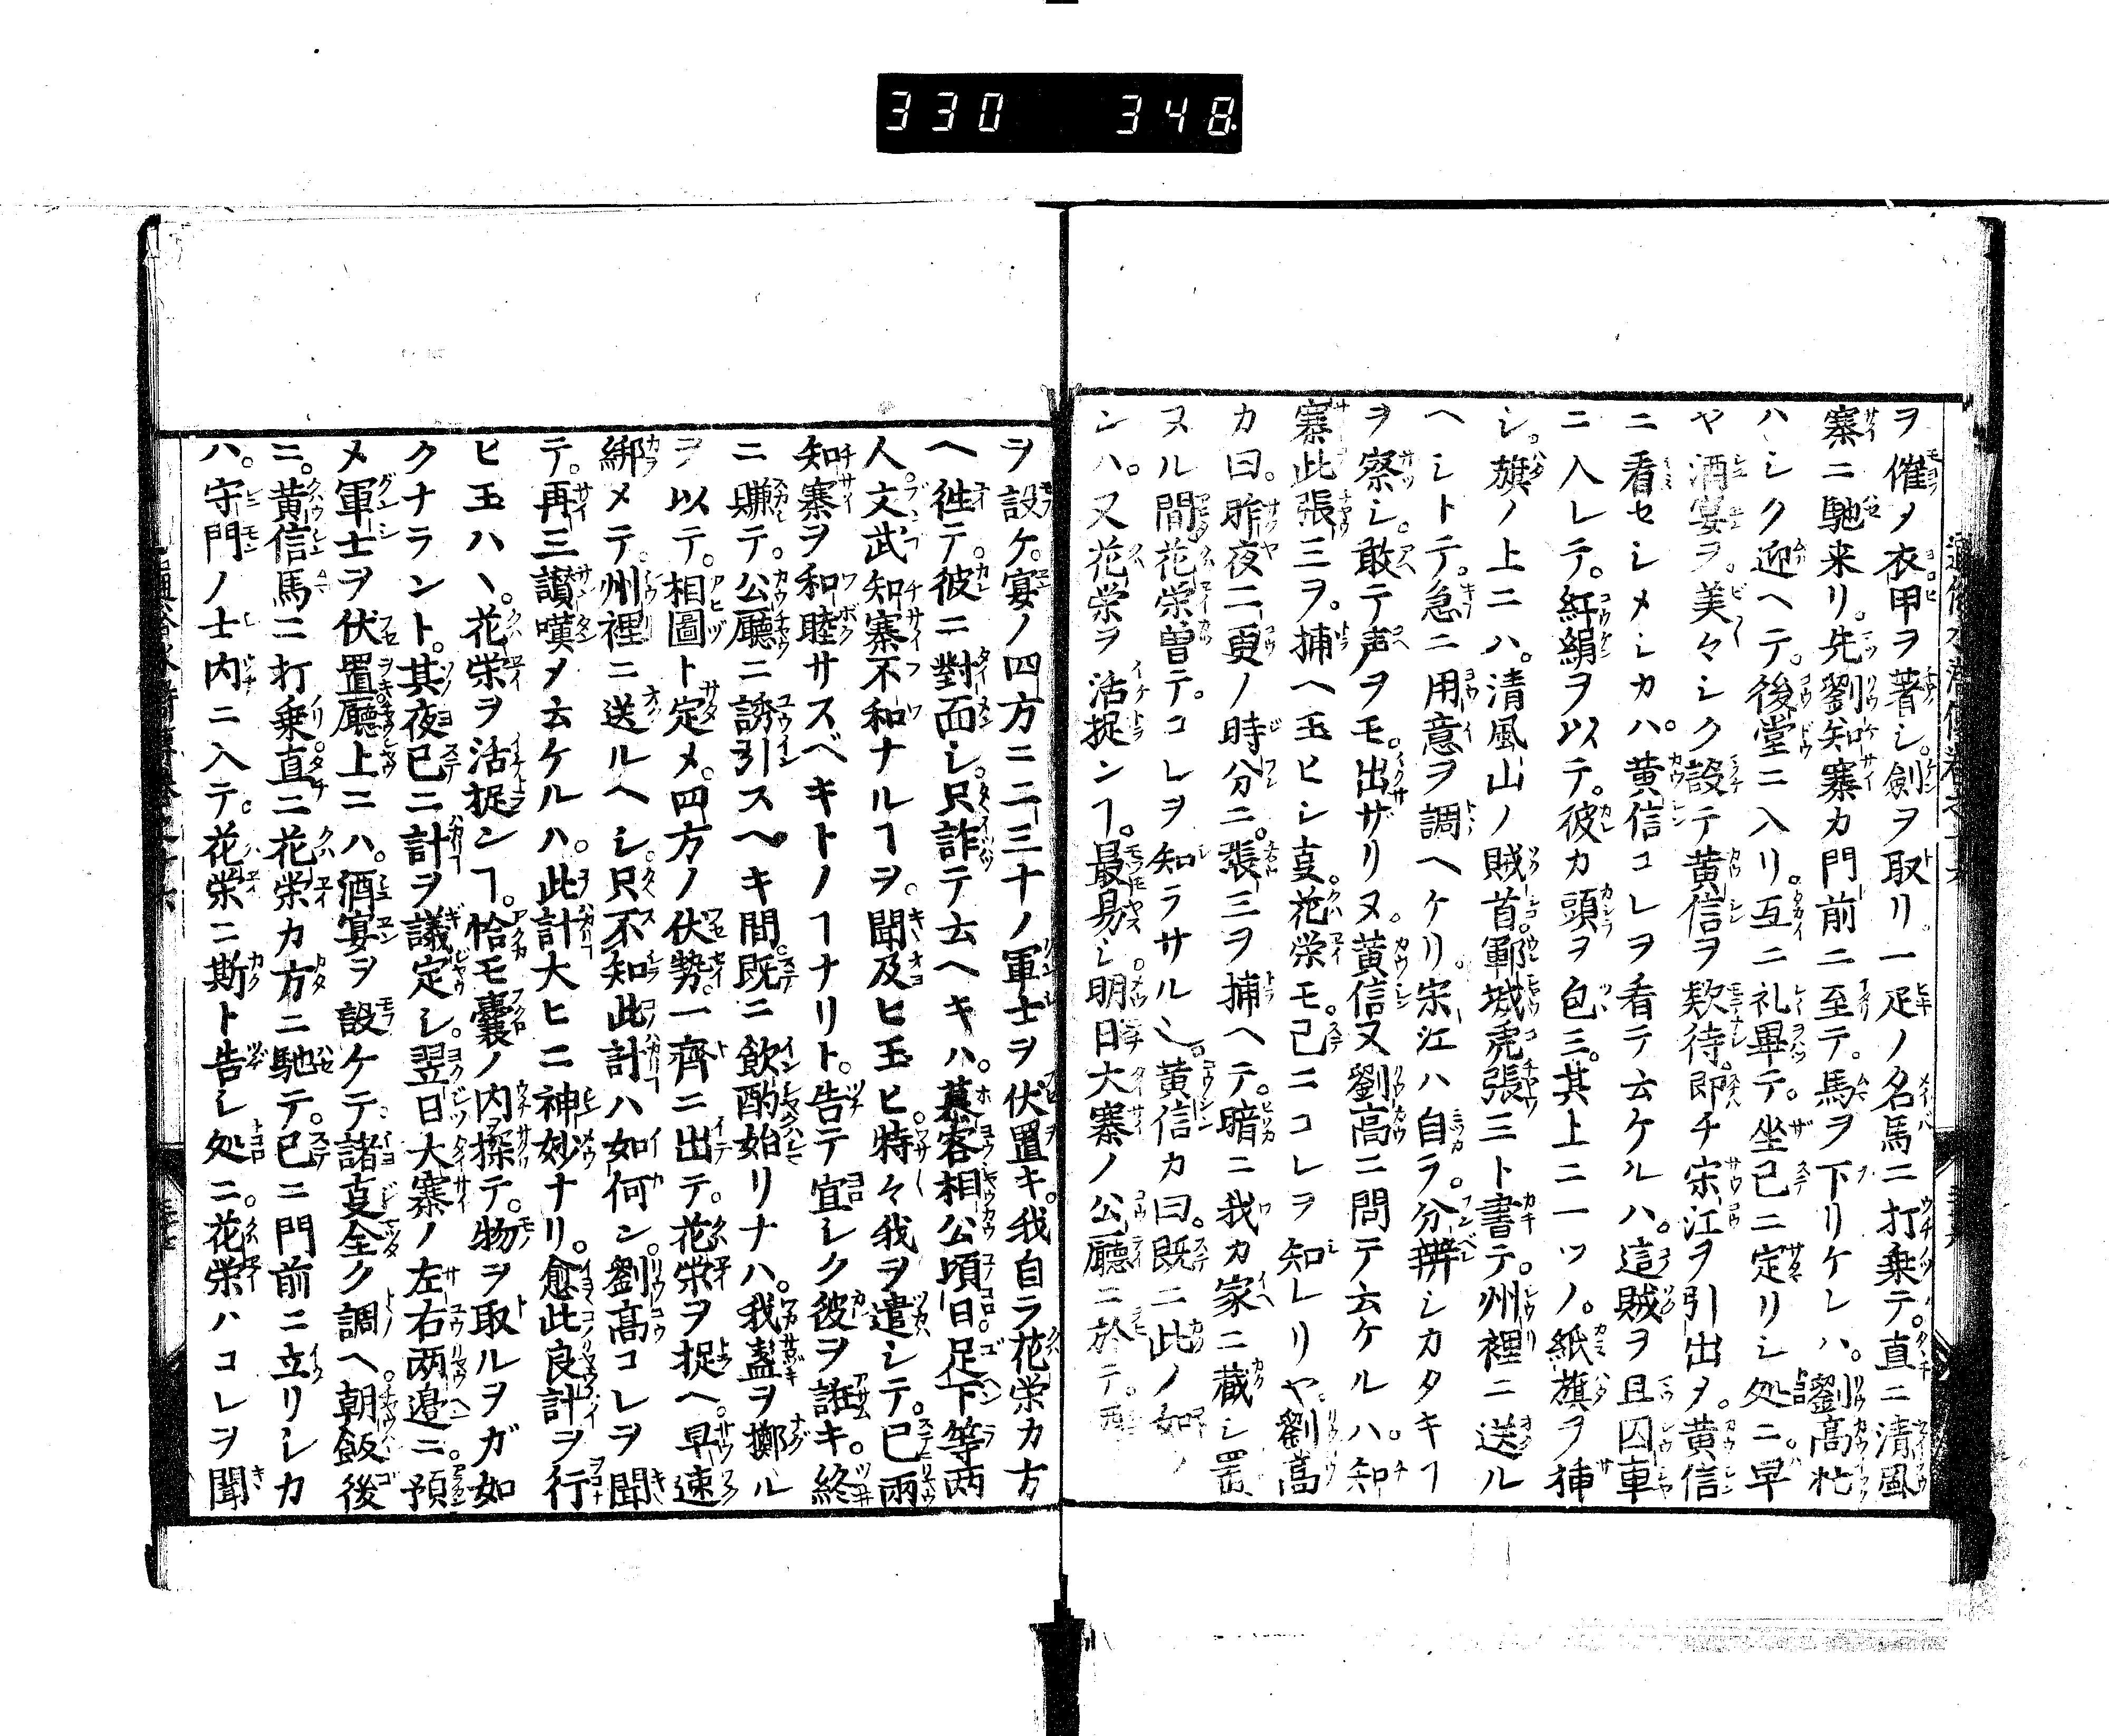 330 348
ヲ催メ衣甲ヲ著シ。劍ヲ取リ。一疋ノ名馬ニ打乗テ。直ニ清風
寨ニ馳来リ。先劉知寨カ門前ニ至テ。馬ヲ下リケレハ。劉高忙
ハシク迎ヘテ。後堂ニ入リ。互ニ礼畢テ。坐已ニ定リシ処ニ。早
ヤ酒宴ヲ。美々シク設テ黄信ヲ欵待。即チ宋江ヲ引出メ。黄信
ニ看セシメシカハ。黄信コレヲ看テ云ケルハ。這賊ヲ且囚車
ニ入レテ。紅絹ヲ以テ。彼カ頭ヲ包三。其上ニ一ツノ。紙旗ヲ挿
シ。旗ノ上ニハ。清風山ノ賊首。鄆城虎張三ト書テ。州裡ニ送ル
ヘシトテ。急ニ用意ヲ調ヘケリ。宋江ハ自ラ。分辨シカタキヿ
ヲ察シ。敢テ声ヲモ。出ザリヌ。黄信又劉高ニ問テ云ケルハ。知
寨此張三ヲ。捕ヘ玉ヒシ叓。花栄モ。已ニコレヲ知レリヤ。劉高
カ曰。昨夜二更ノ時分ニ。張三ヲ捕ヘテ。暗ニ我カ家ニ蔵シ置
ヌル間。花栄曽テ。コレヲ知ラサル也。黄信カ曰。既ニ此ノ如ノ
ンハ。又花栄ヲ活捉ンヿ。最易シ。明日大寨ノ公廳ニ於テ。酒
ヲ設ケ。宴ノ四方ニ二三十ノ軍士ヲ伏置キ。我自ラ花栄カ方
ヘ徃テ。彼ニ對面シ。只詐テ云ヘキハ。慕容相公頃日足下等两
人。文武知寨不和ナルヿヲ。聞及ヒ玉ヒ。特々我ヲ遣シテ。已兩
知寨ヲ和睦サスベキトノヿナリト。告テ宜レク彼ヲ誑キ。終
ニ賺テ。公廳ニ誘引スヘキ間。既ニ飲酌始リナハ。我盞ヲ擲ル
ヲ以テ。相圖ト定メ。四方ノ伏勢。一齊ニ出テ。花栄ヲ捉ヘ。早速
綁メテ。州裡ニ送ルヘシ。只不知此計ハ如何ン。劉高コレヲ聞
テ。再三讃嘆メ云ケルハ。此計大ヒニ神妙ナリ。愈此良計ヲ行
ヒ玉ハヽ。花栄ヲ活捉ンヿ。恰モ嚢ノ内ヲ探テ。物ヲ取ルヲガ如
クナラント。其夜已ニ計ヲ議定シ。翌日大寨ノ左右两邉ニ。預
メ軍士ヲ伏置。廳上ニハ。酒宴ヲ設ケテ。諸叓全ク調ヘ。朝飯後
ニ。黄信馬ニ打乗。直ニ花栄カ方ニ馳テ。已ニ門前ニ立リシカ
ハ。守門ノ士内ニ入テ。花栄ニ斯ト告シ処ニ。花栄ハコレヲ聞